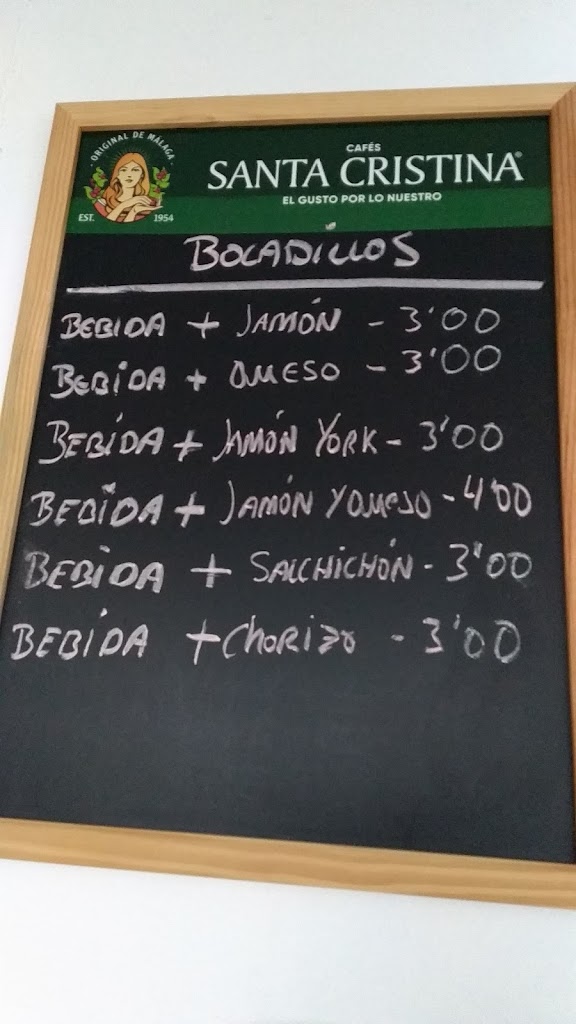 ORIGINAL DE MÁLAGA
EST. 1954
CAFÉS
SANTA CRISTINA®
EL GUSTO POR LO NUESTRO
BOCADILLOS
BEBIDA + JAMÓN - 3'00
BEBIDA + QUESO - 3'00
BEBIDA + JAMÓN YORK - 3'00
BEBIDA + JAMÓN Y QUESO - 4'00
BEBIDA + SALCHICHÓN - 3'00
BEBIDA + CHORIZO - 3'00